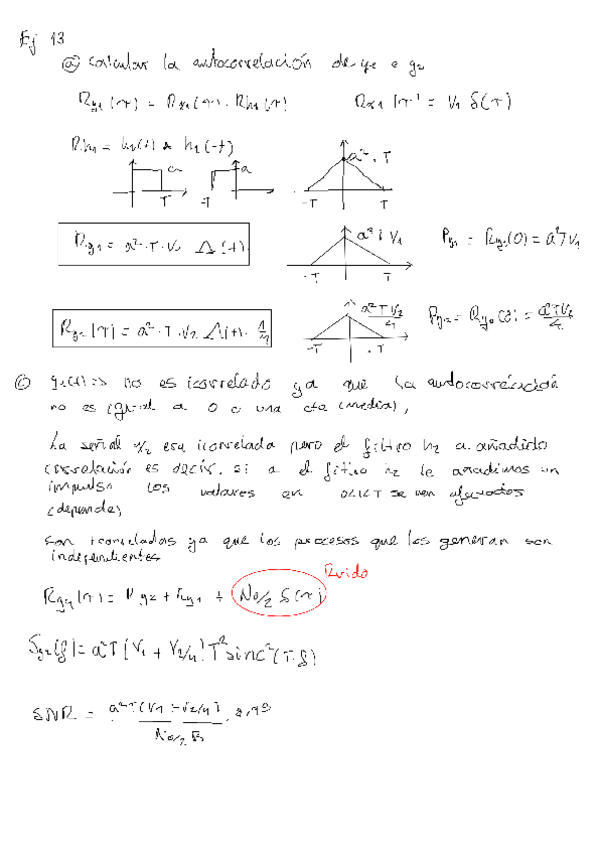 Ej 13
a) Calcular la autocorrelación de y1 e y2
Ry1(τ) = Rx1(τ) · Rh1(τ) Rx1(τ) = V1 δ(τ)
Rh1 = h1(t) * h1(-t)
a a a²·T
T -T -T T
Ry1 = a²·T·V1 Λ(t) a²TV1 Py1 = Ry1(0) = a²TV1
-T T
Ry2(τ) = a²·T·V2 Λ(t)·1/4 a²TV2/4 Py2 = Ry2(0) = a²TV2/4
-T T
y1(t) => no es icorrelado ya que la autocorrelación
no es igual a 0 o una cta (media),
La señal era icorrelada pero el filtro h2 a añadido
correlación es decir, si a el filtro h2 le añadimos un
impulso los valores en 0<t<T se ven afectados
(depende)
Son icorrelados ya que los procesos que los generan son
independientes
Ruido
Ry4(τ) = Ry2 + Ry1 + N0/2 δ(τ)
a²T(V1 + V2/4) T² sinc²(T·f)
SNR = a²T(V1 + V2/4) / N0/2 B